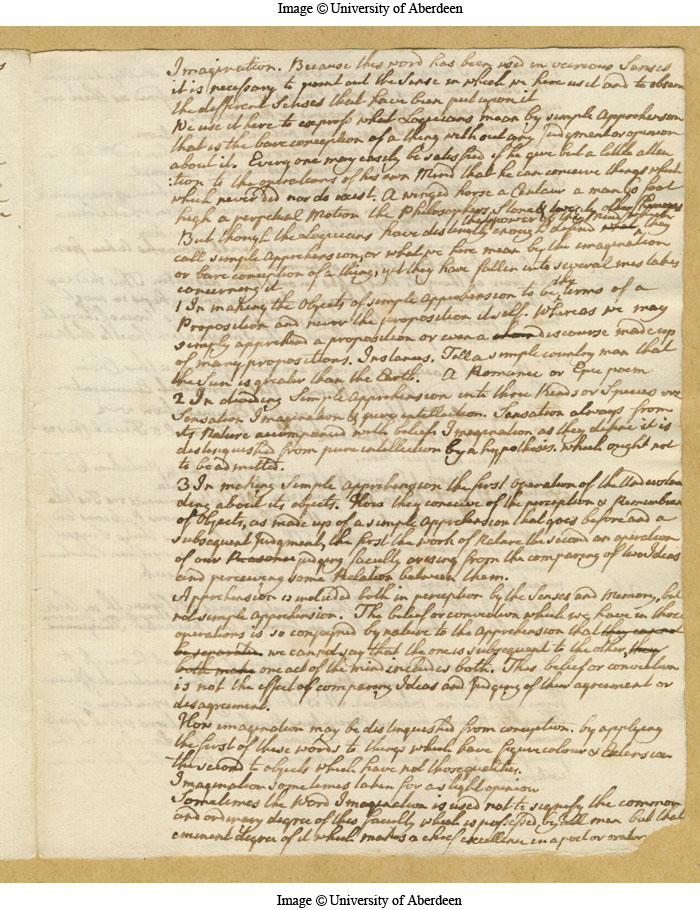 Image © University of Aberdeen
Imagination. Because this word has been used in various Senses
it is necessary to point out the Sense in which we here use it and to observe
the different Senses that have been put upon it
We use it here to express what Logicians mean by simple Apprehension
that is the bare conception of a thing without any Judgment or opinion
about it. Every one may easily be satisfied if he give but a little atten
tion to the operations of his own Mind that he can conceive things which
which never did nor do exist. A winged horse a Centaur a man 60 foot
high a perpetual Motion the Philosophers Stone &
the power of the Mind which
But though the Logicians have distinctly enough defined what they
call simple Apprehension, or what we here mean by the imagination
or bare conception of a thing, yet they have fallen into several mistakes
concerning it
1 In making the Objects of simple Apprehension to be the terms of a
Proposition and never the proposition itself. Whereas we may
simply apprehend a proposition or even a discourse made up
of many propositions. Instances. Tell a simple country man that
the Sun is greater than the Earth. A Romance or Epic poem
2 In dividing Simple Apprehension into three Kinds or Species viz
Sensation Imagination & pure intellection. Sensation always from
its Nature accompanied with belief. Imagination as they define it is
distinguished from pure intellection by a hypothesis. which ought not
to be admitted.
3 In making simple Apprehension the first operation of the Understan
ding about its objects. How they conceive of the perception & Remembran
of Objects, as made up of a simple Apprehension that goes before and a
subsequent Judgment, the first the work of Nature the second an operation
of our judging faculty arising from the comparing of two Ideas
and perceiving some Relation between them.
Apprehension is included both in perception by the Senses and Memory, but
not simple Apprehension. The belief or conviction which we have in those
operations is so conjoyned by nature to the Apprehension that they cannot
be separated we cannot say that the one is subsequent to the other, they
both make one act of the mind includes both. This belief or conviction
is not the effect of comparing Ideas and Judging of their agreement or
disagreement.
How imagination may be distinguished from conception. by applying
the first of these words to things which have figure colour & Extension
the second to objects which have not those qualities.
Imagination sometimes taken for a slight opinion
Sometimes the Word Imagination is used not to signify the common
and ordinary degree of this faculty which is possessed by all men but that
eminent degree of it which makes a chief excellence in a poet or orator
Image © University of Aberdeen